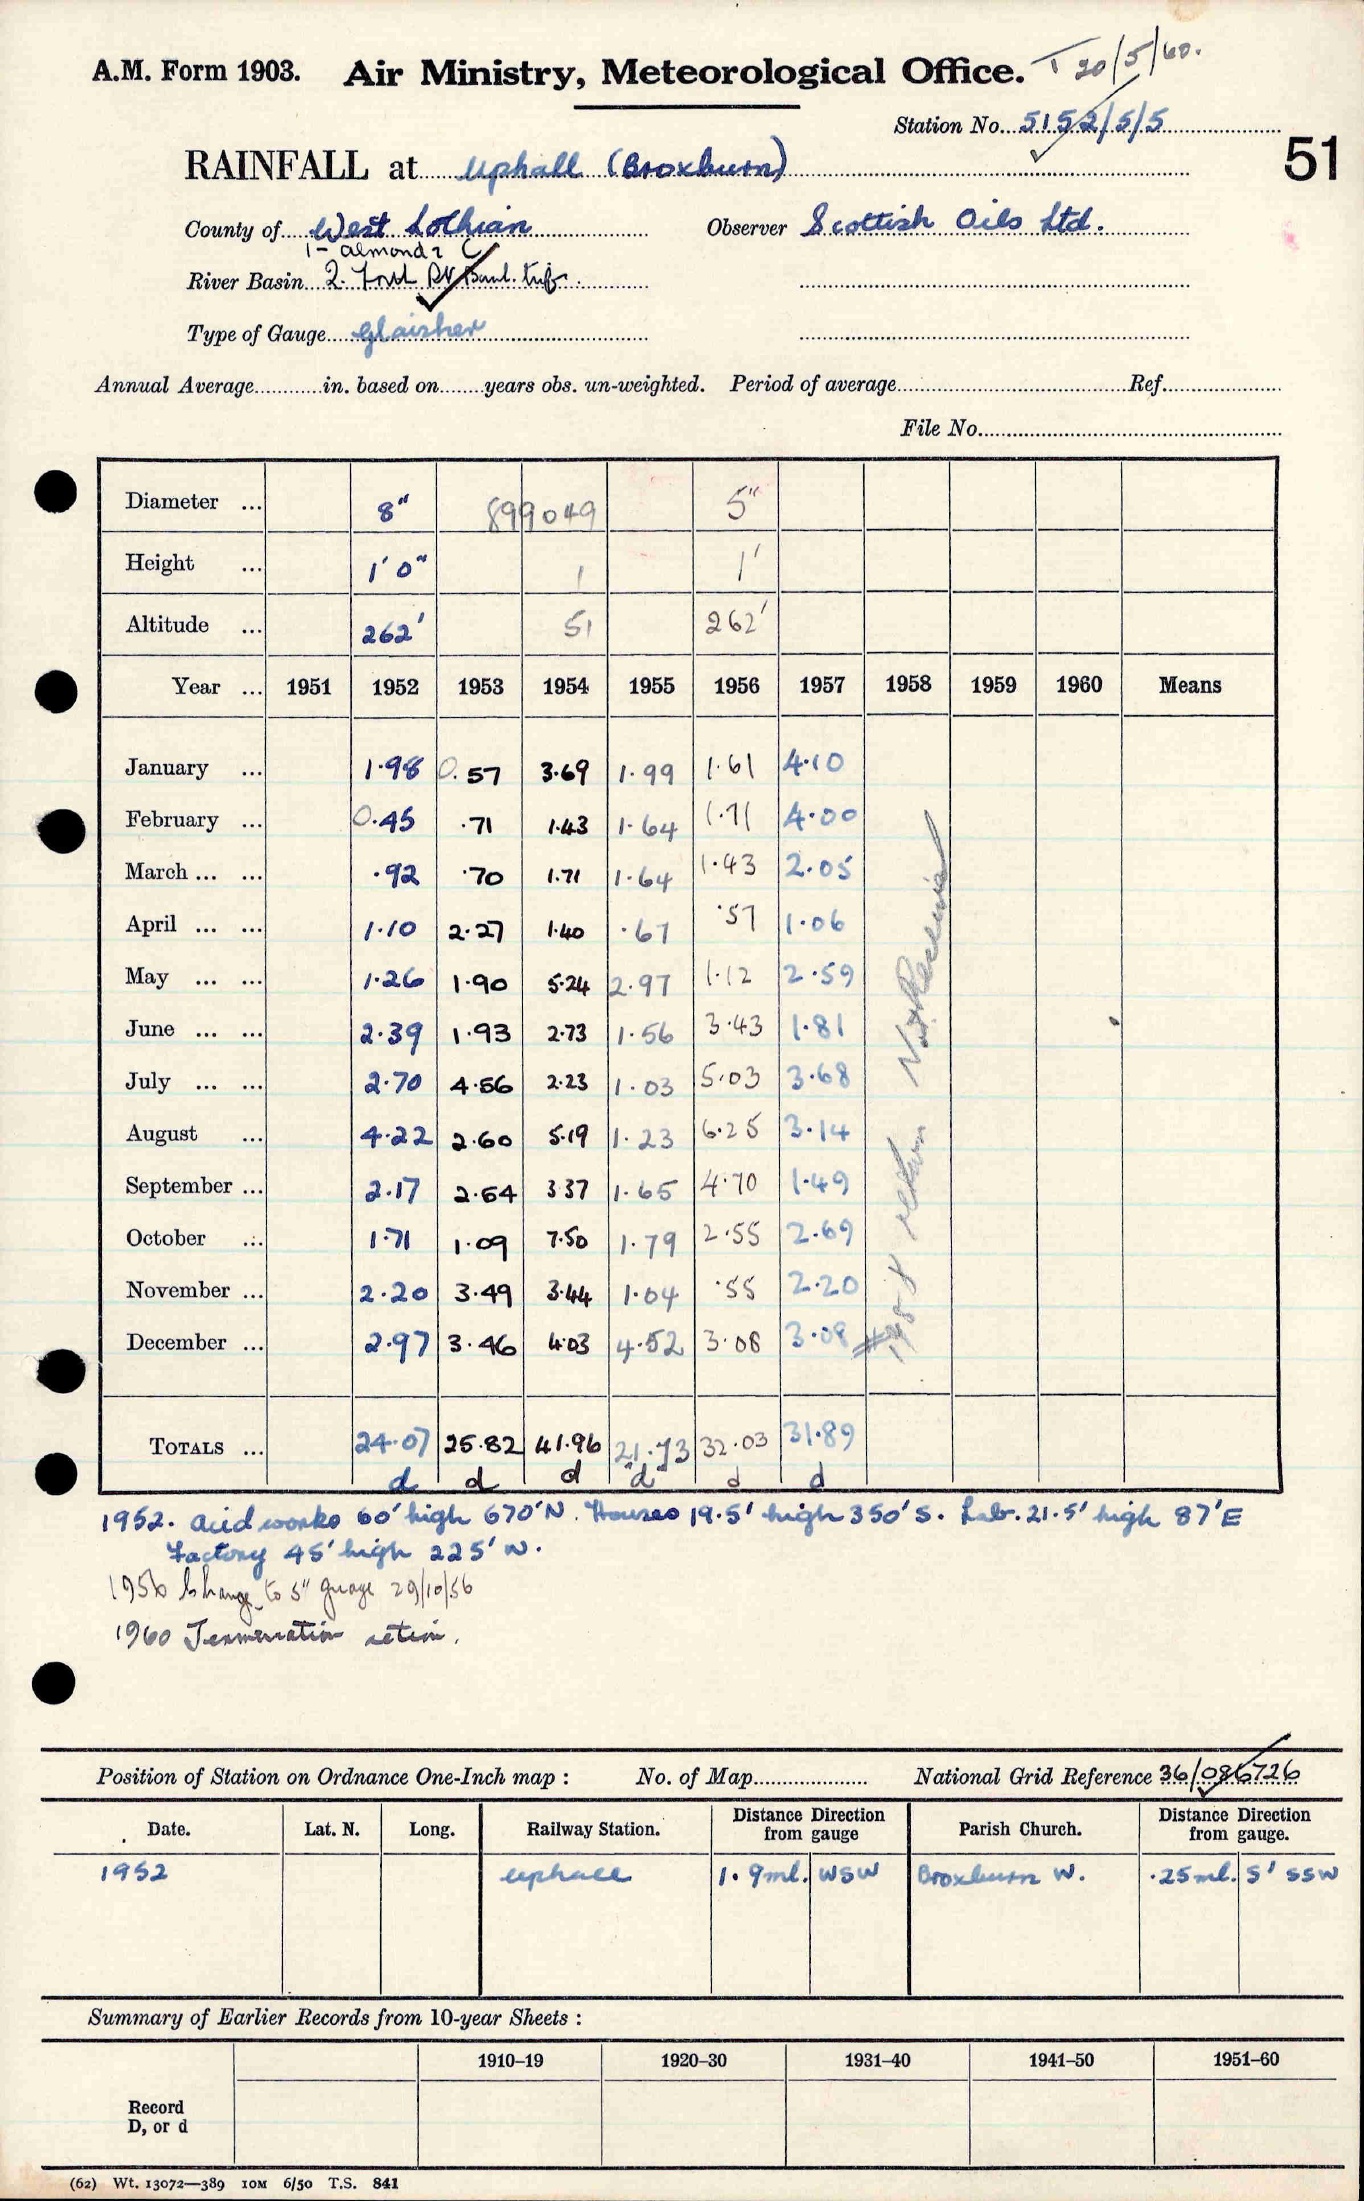 A.M. Form 1903. Air Ministry, Meteorological Office. T 20/5/60.
Station No. 5152/5/5
51
RAINFALL at Uphall (Broxburn)
County of West Lothian Observer Scottish Oils Ltd.
1 - Almond 2 C
River Basin 2. Forth
Type of Gauge Glaisher
Annual Average in. based on years obs. un-weighted. Period of average Ref.
File No.
Diameter ... 8" 899049 5"
Height ... 1' 0" 1 1'
Altitude ... 262' 51 262'
Year ... 1951 1952 1953 1954 1955 1956 1957 1958 1959 1960 Means
January ... 1.98 0.57 3.69 1.99 1.61 4.10
February ... 0.45 .71 1.43 1.64 1.71 4.00
March ... ... .92 .70 1.71 1.64 1.43 2.05
April ... ... 1.10 2.27 1.40 .67 .57 1.06
May ... ... 1.26 1.90 5.24 2.97 1.12 2.59
June ... ... 2.39 1.93 2.73 1.56 3.43 1.81
July ... ... 2.70 4.56 2.23 1.03 5.03 3.68
August ... 4.22 2.60 5.19 1.23 6.25 3.14
September ... 2.17 2.54 3.37 1.65 4.70 1.49
October ... 1.71 1.09 7.50 1.79 2.55 2.69
November ... 2.20 3.49 3.44 1.04 .55 2.20
December ... 2.97 3.46 4.03 4.52 3.08 3.08
1958 return Not Received
TOTALS ... 24.07 25.82 41.96 21.73 32.03 31.89
d d d "d" d d
1952. Acid works 60' high 670' N. Houses 19.5' high 350' S. Lab. 21.5' high 87' E
Factory 45' high 225' W.
1956 Change to 5" guage 29/10/56
1960 Termination
Position of Station on Ordnance One-Inch map : No. of Map National Grid Reference 36/086726
Date. Lat. N. Long. Railway Station. Distance Direction from gauge Parish Church. Distance Direction from gauge.
1952 Uphall 1.9ml. WSW Broxburn W. .25ml. S' SSW
Summary of Earlier Records from 10-year Sheets :
1910–19 1920–30 1931–40 1941–50 1951–60
Record
D, or d
(62) Wt. 13072—389 10M 6/50 T.S. 841